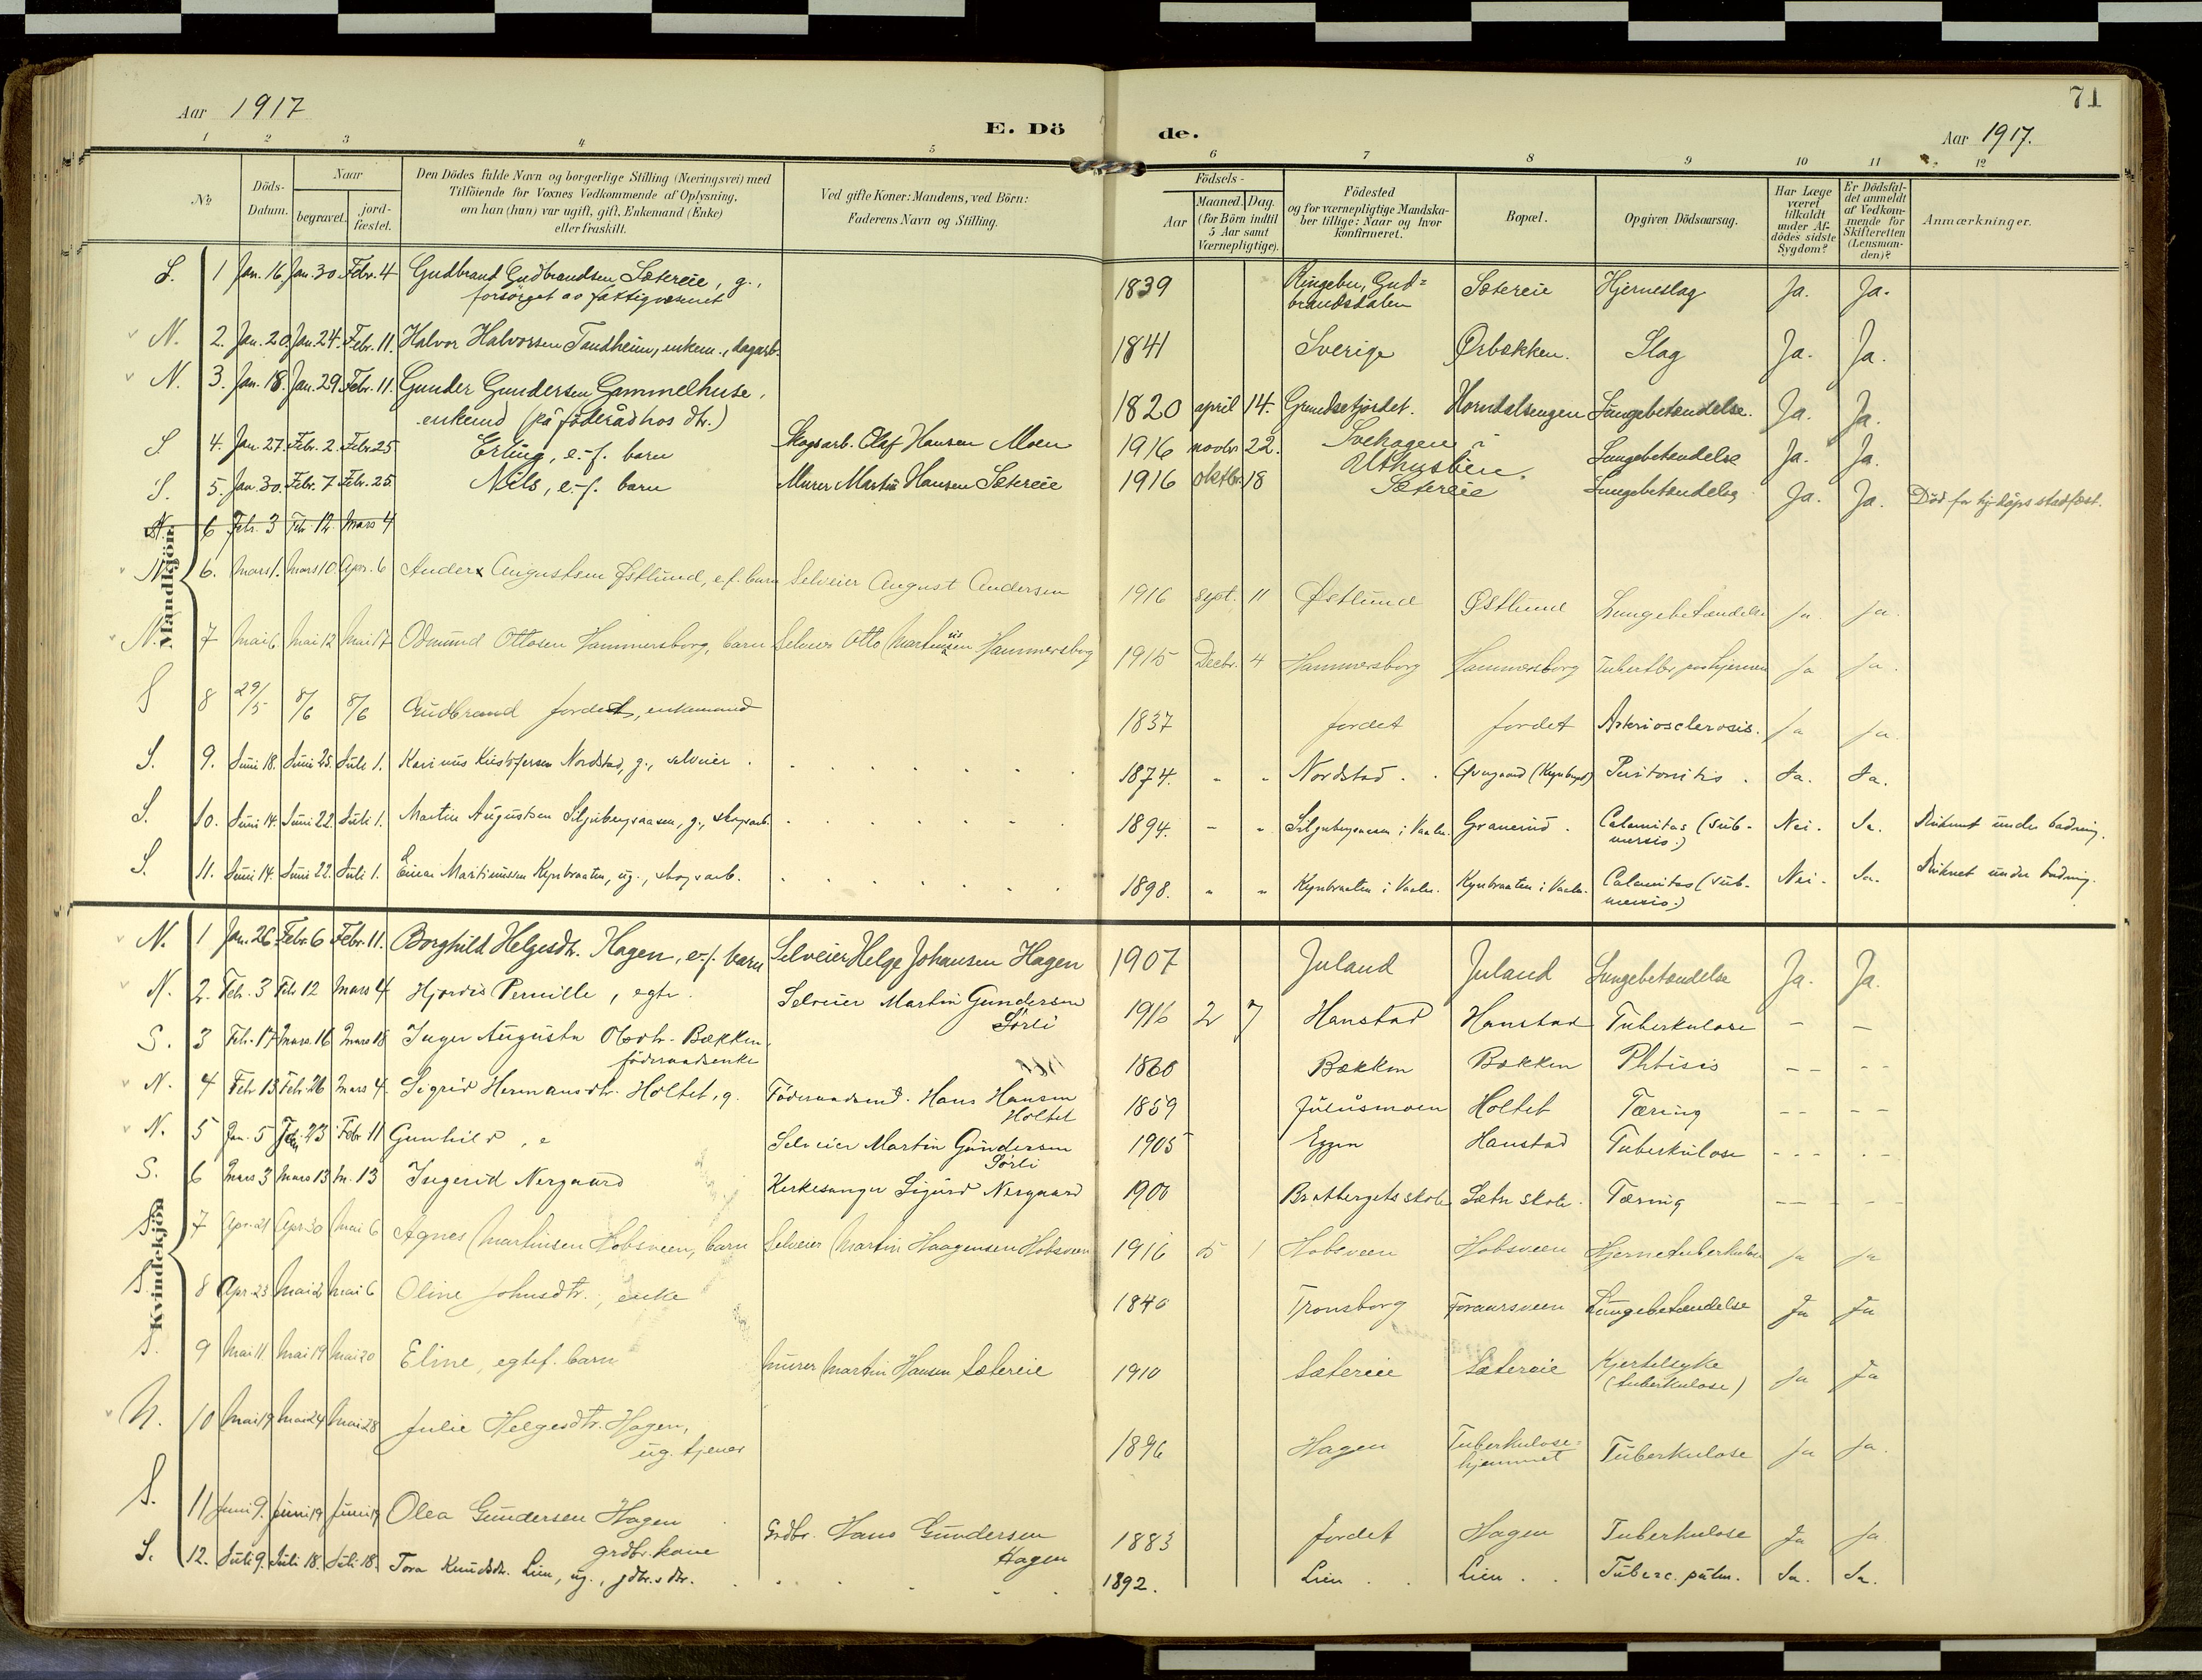 71
Aar 1917
E. Döde.
Aar 1917.
1 2 3 4 5 6 7 8 9 10 11 12
No
Döds-Datum.
Naar
begravet.
jord-fæstet.
Den Dödes fulde Navn og borgerlige Stilling (Næringsvei) med
Tilföiende for Voxnes Vedkommende af Oplysning,
om han (hun) var ugift, gift, Enkemand (Enke)
eller fraskilt.
Ved gifte Koner: Mandens, ved Börn:
Faderens Navn og Stilling.
Födsels-
Aar
Maaned. Dag.
(for Börn indtil
5 Aar samt
Værnepligtige).
Födested
og for værnepligtige Mandska-
ber tillige: Naar og hvor
konfirmeret.
Bopæl.
Opgiven Dödsaarsag.
Har Læge
været
tilkaldt
under Af-
dödes sidste
Sygdom?
Er Dödsfal-
det anmeldt
af Vedkom-
mende for
Skifteretten
(Lensman-
den)?
Anmærkninger.
Mandkjön
S. 1 Jan. 16 Jan. 30. Febr. 4 Gudbrand Gudbrandsen Sætereie, g., 1839 Ringebu, Gud= Sætereie Hjerneslag Ja. Ja.
forsörget av fattigvæsenet brandsdalen
N. 2. Jan. 20. Jan. 24. Febr. 11. Halvor Halvorsen Tandheim, enkem., dagarb. 1841 Sverige Ørbækken. Slag Ja. Ja.
N. 3. Jan. 18. Jan. 29. Febr. 11. Gunder Gundersen Gammelhuse, 1820 april 14. Grundsetfjordet. Horndalsengen Lungebetændelse. Ja. Ja.
enkemd (på föderåd hos dtr.)
S 4. Jan. 27. Febr. 2. Febr. 25. Erling, e.-f. barn Skogsarb. Olaf Hansen Moen 1916 novbr. 22. Svehagen i Lungebetændelse Ja. Ja.
Uthuslien.
S. 5. Jan. 30. Febr. 7. Febr. 25. Nils, e.-f. barn Murer Martin Hansen Sætereie 1916 oktbr. 18 Sætereie Lungebetændelse Ja. Ja. Död før hj.dåps stadfæst.
N. 6 Febr. 3 Feb. 12. Mars 4
N. 6. Mars 1. Mars 10. Apr. 6 Anders Augustsen Østlund, e.f. barn Selveier August Andersen 1916 sept. 11 Østlund Østlund Lungebetændelse Ja Ja.
N. 7 Mai 6. Mai 12 Mai 17 Odmund Ottosen Hammersborg, barn Selveier Otto Martinussen Hammersborg 1915 Decbr. 4 Hammersborg Hammersborg Tuberkler paa hjernen Ja Ja.
S 8 29/5 8/6 8/6 Gudbrand Jordet, enkemand 1837 Jordet Jordet Arteriosclerosis. Ja Ja.
S. 9. Juni 18. Juni 25. Juli 1. Karinus Kristofersen Nordstad, g., selveier. 1874. - - Nordstad. Øvergaard (Kynbergs) Peritonitis. Ja. Ja.
S. 10. Juni 14. Juni 22. Juli 1. Martin Augustsen Siljubergsaasen, g., skogsarb. 1894. - - Siljubergsaasen i Vaaler. Graneind. Calamitas (sub- Nei. Ja. Druknet under badning.
mersio.)
S. 11. Juni 14. Juni 22. Juli 1. Einar Martinussen Kynbraaten, ug., skogsarb. 1898. - - Kynbraaten i Vaaler. Kynbraaten i Vaaler. Calamitas (sub- Nei. Ja. Druknet under badning.
mersio.)
Kvindekjön
N. 1 Jan. 26 Febr. 6 Febr. 11. Borghild Helgesdtr. Hagen, e.-f. barn Selveier Helge Johansen Hagen 1907 Juland Juland Lungebetændelse Ja. Ja.
N. 2. Feb. 3 Feb 12 Mars 4 Hjørdis Pernille, egte. Selveier Martin Gundersen 1916 2 7 Hanstad Hanstad Tuberkulose - -
Sörli
S. 3 Feb. 17 Mars 16 Mars 18 Inger Augusta Olsdtr. Bækken, 1860 Bækken Bækken Phtisis - - - -
föderaadsenke
N. 4 Febr 13 Feb. 26 Mars 4. Sigrid Hermansdtr. Holtet, g. Föderaadsmd. Hans Hansen 1859 Julusmoen Holtet Tæring - - - -
Holtet
N. 5 Jan. 5 Jan. 23 Febr 11 Gunhild, e Selveier Martin Gundersen 1905 Eggen Hanstad Tuberkulose - - - - -
Sörli
S. 6 Mars 3 Mars 13 M. 13 Ingerid Nergaard Kirkesanger Sigurd Nergaard 1900 Bratbergets skole Sætre skole. Tæring - - - -
S. 7 Apr. 21 Apr 30 Mai 6 Agnes Martinsen Hobsveen, barn Selveier Martin Haagensen Hobsveen 1916 5 1 Hobsveen Hobsveen Hjernetuberkulose Ja Ja
S. 8 Apr. 23 Mai 2 Mai 6 Oline Johnsdtr., enke 1840 Tronsborg Foraarsveen Lungebetændelse Ja Ja
S. 9 Mai 11. Mai 19 Mai 20 Eline, egtef. barn Murer Martin Hansen Sætereie 1910 Sætereie Sætereie Kjertelsyke Ja Ja
(tuberkulose)
N. 10 Mai 19 Mai 24 Mai 28 Julie Helgesdtr. Hagen, 1896 Hagen Tuberkulose= Tuberkulose Ja Ja.
ug. tjener hjemmet
S. 11 Juni 9. Juni 19 Juni 19 Olea Gundersen Hagen Grdbr. Hans Gundersen 1883 Jordet Hagen Tuberkulose Ja Ja
grdbr. kone Hagen
S. 12. Juli 9. Juli 18. Juli 18. Tora Knudsdtr. Lien, ug., gdbr.s dtr. 1892. Lien. Lien. Tuberc. pulm. Ja. Ja.